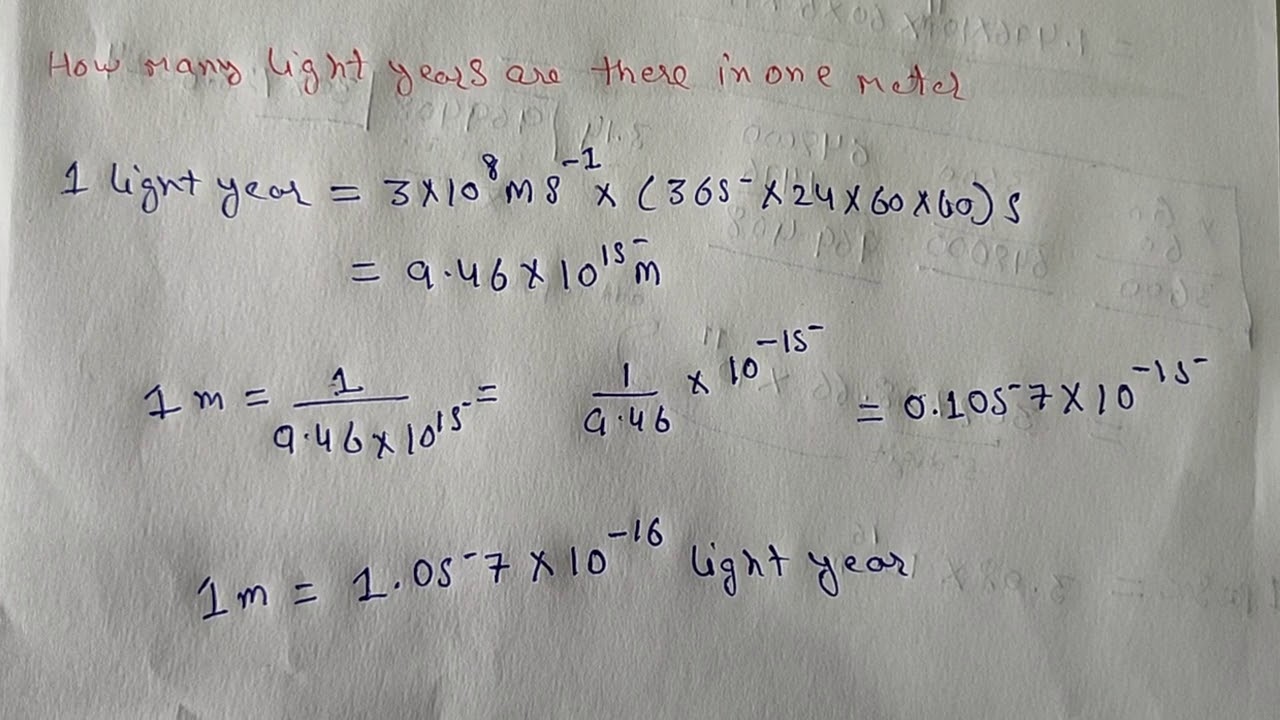 How many light years are there in one meter
1 light year = 3×10⁸ms⁻¹ × (365×24×60×60)s
= 9.46×10¹⁵m
1m = 1/9.46×10¹⁵ = 1/9.46 × 10⁻¹⁵ = 0.1057×10⁻¹⁵
1m = 1.057×10⁻¹⁶ light year